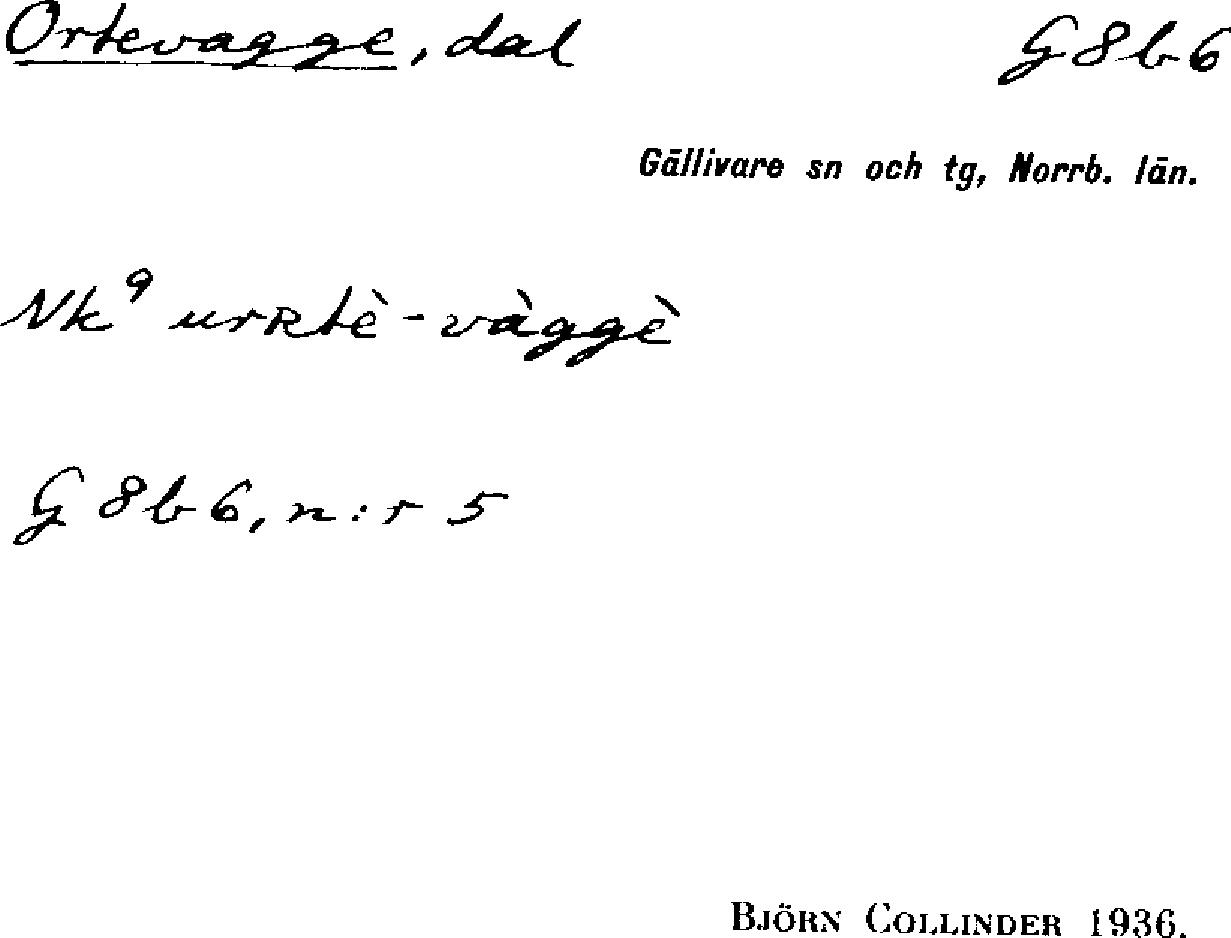 Ortevagge, dal G8b6
Gällivare sn och tg, Norrb. län.
Nk⁹ urʀtè-vàggè
G 8b6, n:r 5
Björn Collinder 1936.